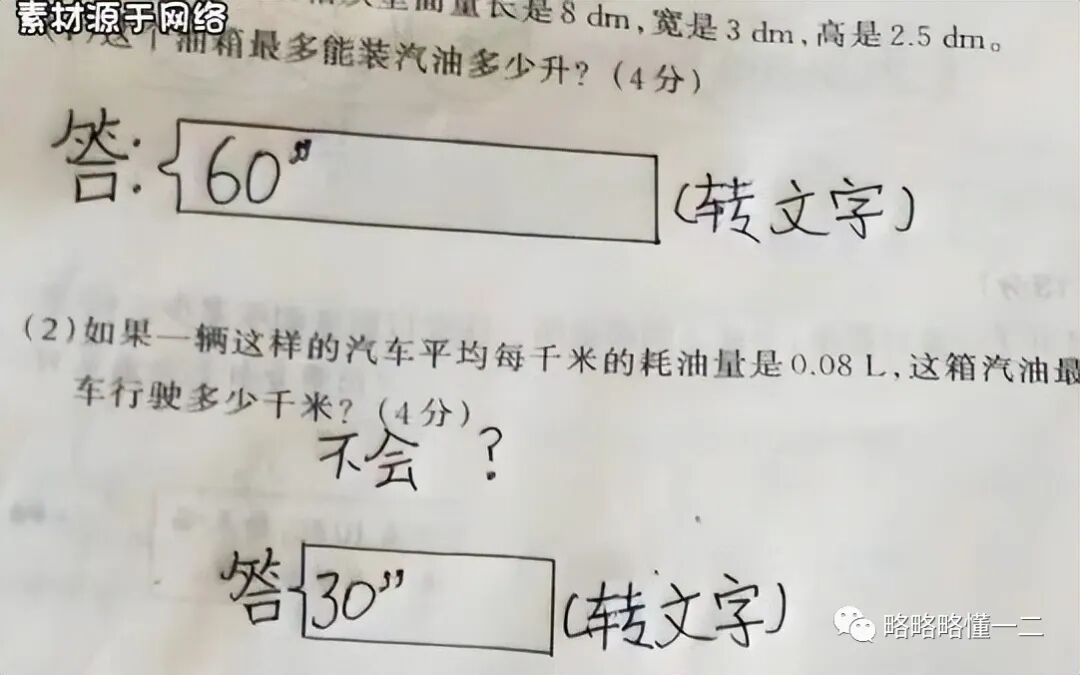 素材源于网络
面量长是8 dm,宽是3 dm,高是2.5 dm。
这个油箱最多能装汽油多少升?(4分)
答:60"(转文字)
(2)如果一辆这样的汽车平均每千米的耗油量是0.08 L,这箱汽油最
车行驶多少千米?(4分)
不会?
答30"(转文字)
略略略懂一二